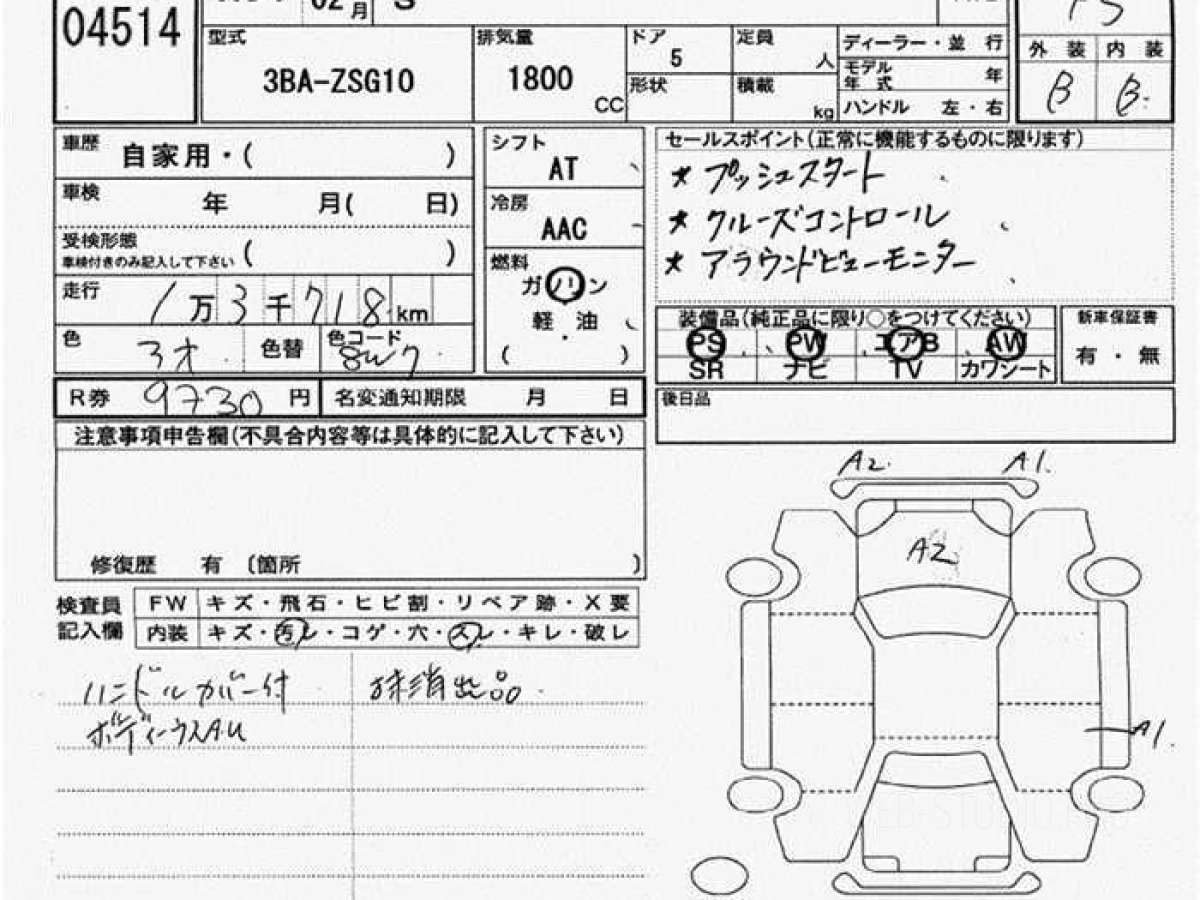 04514
02月 S
型式 3BA-ZSG10
排気量 1800 CC
ドア 5
形状
定員 人
積載 kg
ディーラー・並 行
モデル年 式 年
ハンドル 左・右
外 装 内 装
B B
車歴 自家用・( )
車検 年 月( 日)
受検形態
車検付きのみ記入して下さい ( )
走行 1万3千718km
色 色替 色コード
R券 9730円 名変通知期限 月 日
シフト AT
冷房 AAC
燃料
ガソリン
軽・油
( )
セールスポイント(正常に機能するものに限ります)
★ プッシュスタート
★ クルーズコントロール
★ アラウンドビューモニター
装備品(純正品に限り○をつけてください)
PS PW エアB AW
SR ナビ TV カワシート
新車保証書
有・無
後日品
注意事項申告欄(不具合内容等は具体的に記入して下さい)
修復歴 有 〔箇所 〕
検査員記入欄
FW キズ・飛石・ヒビ割・リペア跡・X要
内装 キズ・汚レ・コゲ・穴・スレ・キレ・破レ
ハンドルカバー付
抹消出品
ボディーウスA.U
A2. A1.
A2
A1.